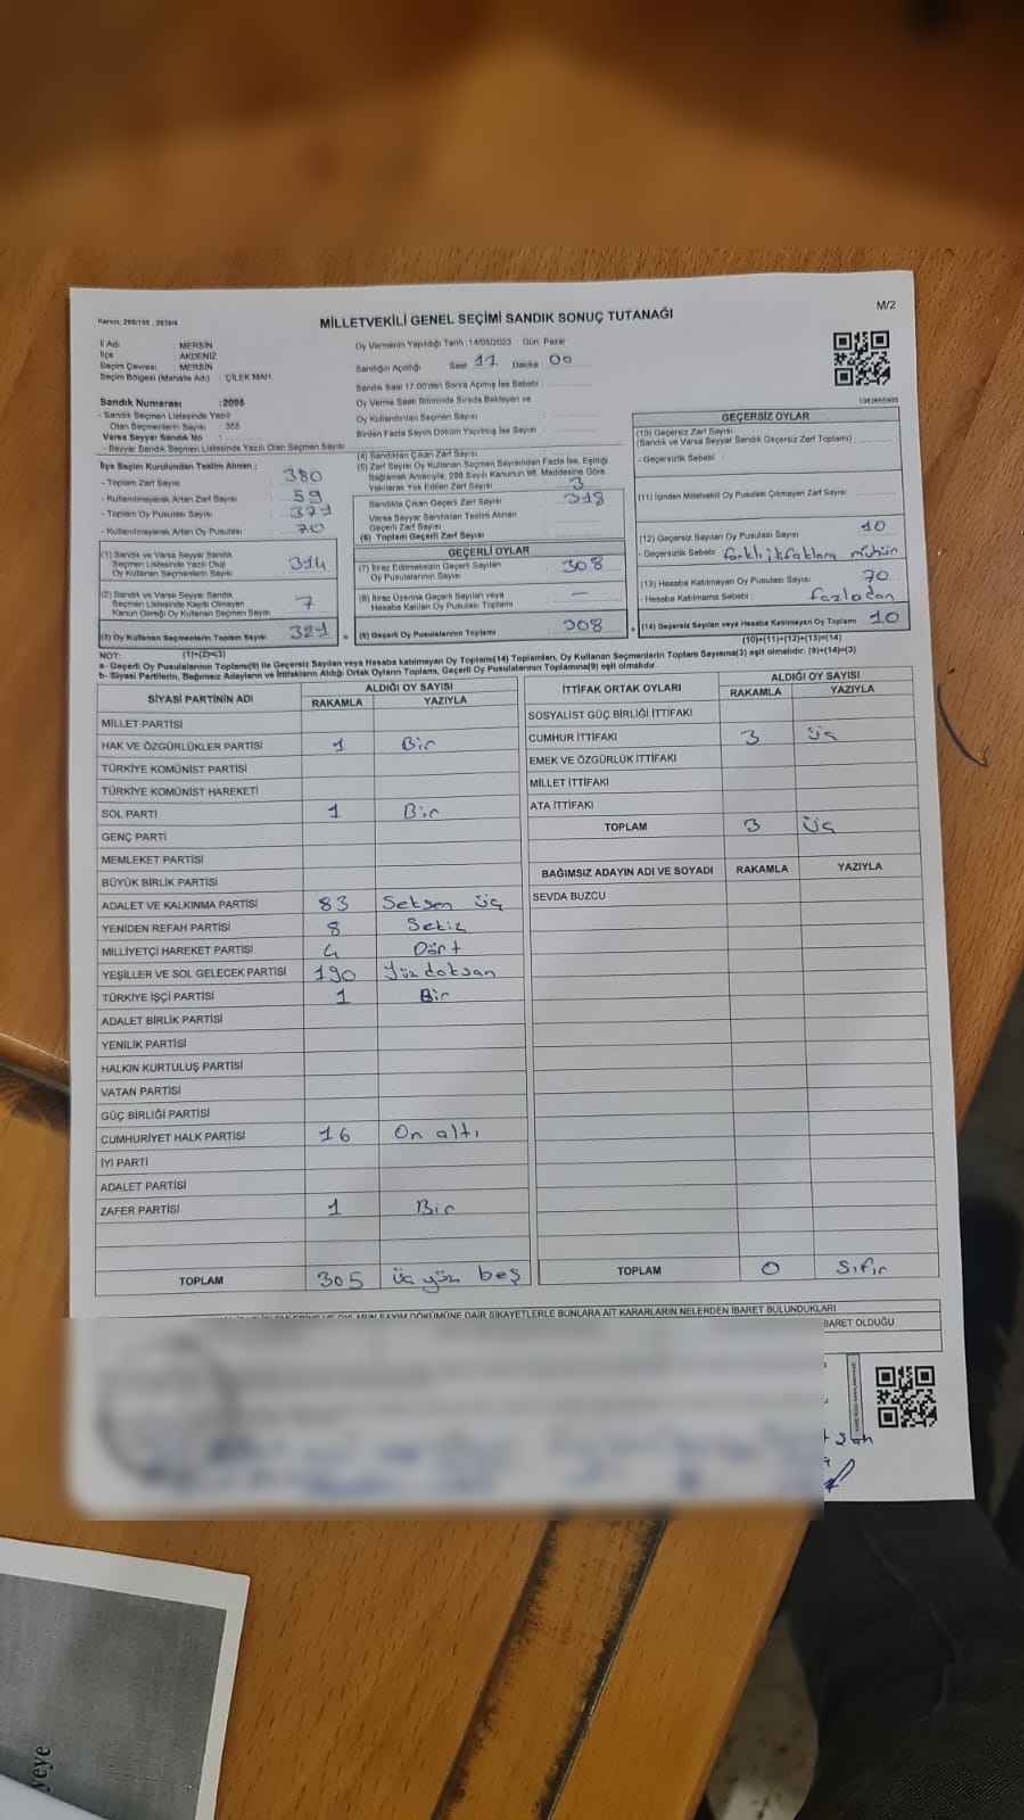 M/2
MİLLETVEKİLİ GENEL SEÇİMİ SANDIK SONUÇ TUTANAĞI
İl Adı : MERSİN
İlçe : AKDENİZ
Seçim Çevresi : MERSİN
Seçim Bölgesi (Mahalle Adı) : ÇİLEK MAH.
Oy Vermenin Yapıldığı Tarih :14/05/2023 Gün: Pazar
Sandığın Açıldığı : Saat 17 Dakika 00
Sandık Saat 17.00'den Sonra Açılmış İse Sebebi :
Oy Verme Saati Bitiminde Sırada Bekleyen ve
Oy Kullandırılan Seçmen Sayısı
Birden Fazla Sayım Döküm Yapılmış İse Sayısı
Sandık Numarası :2095
- Sandık Seçmen Listesinde Yazılı
Olan Seçmenlerin Sayısı :
Varsa Seyyar Sandık No :
- Seyyar Sandık Seçmen Listesinde Yazılı Olan Seçmen Sayısı:
İlçe Seçim Kurulundan Teslim Alınan :
- Toplam Zarf Sayısı : 380
- Kullanılmayarak Artan Zarf Sayısı : 59
- Toplam Oy Pusulası Sayısı :
- Kullanılmayarak Artan Oy Pusulası : 70
(1) Sandık ve Varsa Seyyar Sandık
Seçmen Listesinde Yazılı Olup
Oy Kullanan Seçmenlerin Sayısı: 314
(2) Sandık ve Varsa Seyyar Sandık
Seçmen Listesinde Kayıtlı Olmayan
Kanun Gereği Oy Kullanan Seçmen Sayısı: 7
(3) Oy Kullanan Seçmenlerin Toplam Sayısı: 321
(1)+(2)=(3)
(4) Sandıktan Çıkan Zarf Sayısı
(5) Zarf Sayısı Oy Kullanan Seçmen Sayısından Fazla İse, Eşitliği
Sağlamak Amacıyla, 298 Sayılı Kanunun 98. Maddesine Göre
Yakılarak Yok Edilen Zarf Sayısı: 3
Sandıkta Çıkan Geçerli Zarf Sayısı 318
Varsa Seyyar Sandıktan Teslim Alınan
Geçerli Zarf Sayısı
(6) Toplam Geçerli Zarf Sayısı
GEÇERLİ OYLAR
(7) İtiraz Edilmeksizin Geçerli Sayılan
Oy Pusulalarının Sayısı 308
(8) İtiraz Üzerine Geçerli Sayılan veya
Hesaba Katılan Oy Pusulası Toplamı —
(9) Geçerli Oy Pusulalarının Toplamı 308
GEÇERSİZ OYLAR
(10) Geçersiz Zarf Sayısı
(Sandık ve Varsa Seyyar Sandık Geçersiz Zarf Toplamı)
- Geçersizlik Sebebi :
(11) İçinden Milletvekili Oy Pusulası Çıkmayan Zarf Sayısı
(12) Geçersiz Sayılan Oy Pusulası Sayısı 10
- Geçersizlik Sebebi: mühür
(13) Hesaba Katılmayan Oy Pusulası Sayısı 70
- Hesaba Katılmama Sebebi : fazladan
(14) Geçersiz Sayılan veya Hesaba Katılmayan Oy Toplamı 10
(10)+(11)+(12)+(13)=(14)
NOT:
a- Geçerli Oy Pusulalarının Toplamı(9) ile Geçersiz Sayılan veya Hesaba katılmayan Oy Toplamı(14) Toplamları, Oy Kullanan Seçmenlerin Toplam Sayısına(3) eşit olmalıdır. (9)+(14)=(3)
b- Siyasi Partilerin, Bağımsız Adayların ve İttifakların Aldığı Ortak Oyların Toplamı, Geçerli Oy Pusulalarının Toplamına(9) eşit olmalıdır.
SİYASİ PARTİNİN ADI ALDIĞI OY SAYISI
RAKAMLA YAZIYLA
MİLLET PARTİSİ
HAK VE ÖZGÜRLÜKLER PARTİSİ 1 Bir
TÜRKİYE KOMÜNİST PARTİSİ
TÜRKİYE KOMÜNİST HAREKETİ
SOL PARTİ 1 Bir
GENÇ PARTİ
MEMLEKET PARTİSİ
BÜYÜK BİRLİK PARTİSİ
ADALET VE KALKINMA PARTİSİ 83 Seksen üç
YENİDEN REFAH PARTİSİ 8 Sekiz
MİLLİYETÇİ HAREKET PARTİSİ 4 Dört
YEŞİLLER VE SOL GELECEK PARTİSİ 190 Yüz doksan
TÜRKİYE İŞÇİ PARTİSİ 1 Bir
ADALET BİRLİK PARTİSİ
YENİLİK PARTİSİ
HALKIN KURTULUŞ PARTİSİ
VATAN PARTİSİ
GÜÇ BİRLİĞİ PARTİSİ
CUMHURİYET HALK PARTİSİ 16 On altı
İYİ PARTİ
ADALET PARTİSİ
ZAFER PARTİSİ 1 Bir
TOPLAM 305 üç yüz beş
İTTİFAK ORTAK OYLARI ALDIĞI OY SAYISI
RAKAMLA YAZIYLA
SOSYALİST GÜÇ BİRLİĞİ İTTİFAKI
CUMHUR İTTİFAKI 3 üç
EMEK VE ÖZGÜRLÜK İTTİFAKI
MİLLET İTTİFAKI
ATA İTTİFAKI
TOPLAM 3 üç
BAĞIMSIZ ADAYIN ADI VE SOYADI RAKAMLA YAZIYLA
SEVDA BUZCU
TOPLAM 0 Sıfır
SAYIM DÖKÜMÜNE DAİR ŞİKAYETLERLE BUNLARA AİT KARARLARIN NELERDEN İBARET BULUNDUKLARI
İBARET OLDUĞU
yeye